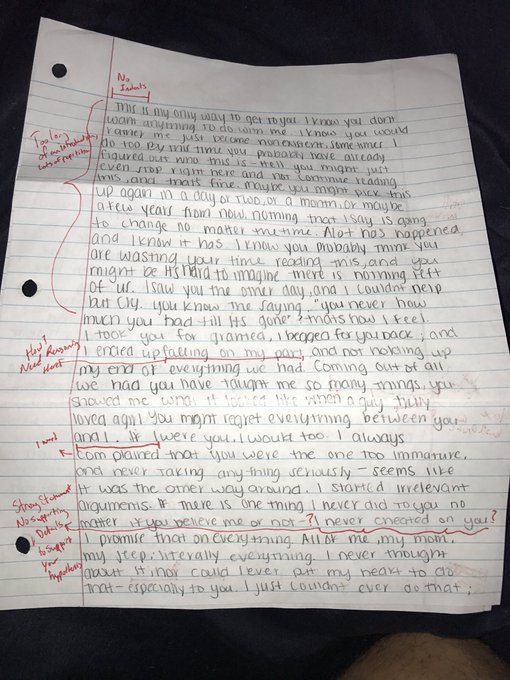 No
Indents
Too long
of an introduction,
lots of repetition
This is my only way to get to you I know you don't
want anything to do with me. I know you would
rather me just become nonexistent, sometimes I
do too. By this time you probably have already
figured out who this is - Hell you might just
even stop right here and not continue reading
this, and that's fine. maybe you might pick this
up again in a day or two, or a month, or maybe
a few years from now. nothing that I say is going
to change no matter the time. Alot has happened,
and I know it has I know you probably think you
are wasting your time reading this, and you
might be It's hard to imagine there is nothing left
of "us. I saw you the other day, and I couldn't help
but cry. you know the saying, "you never how
much you had till its gone"? thats how I feel.
I took you for granted, I begged for you back; and
I ended up falling on my part, and not holding up
my end of everything we had. Coming out of all
we had you have taught me so many things, you
showed me what it looked like when a guy truly
loved a girl. You might regret everything between you
and I. If I were you, I would too. I always
complained that you were the one too immature,
and never taking anything seriously - seems like
it was the other way around. I started irrelevant
arguments. If there is one thing I never did to you no
matter if you believe me or not - ? I never cheated on you?
I promise that on everything. All of me, my mom,
my step; literally everything. I never thought
about it, nor could I ever put my heart to do
that - especially to you. I just couldn't ever do that;
How?
Need Reasoning
Here!
Strong Statement
No supporting
Details
to support
your
hypothesis